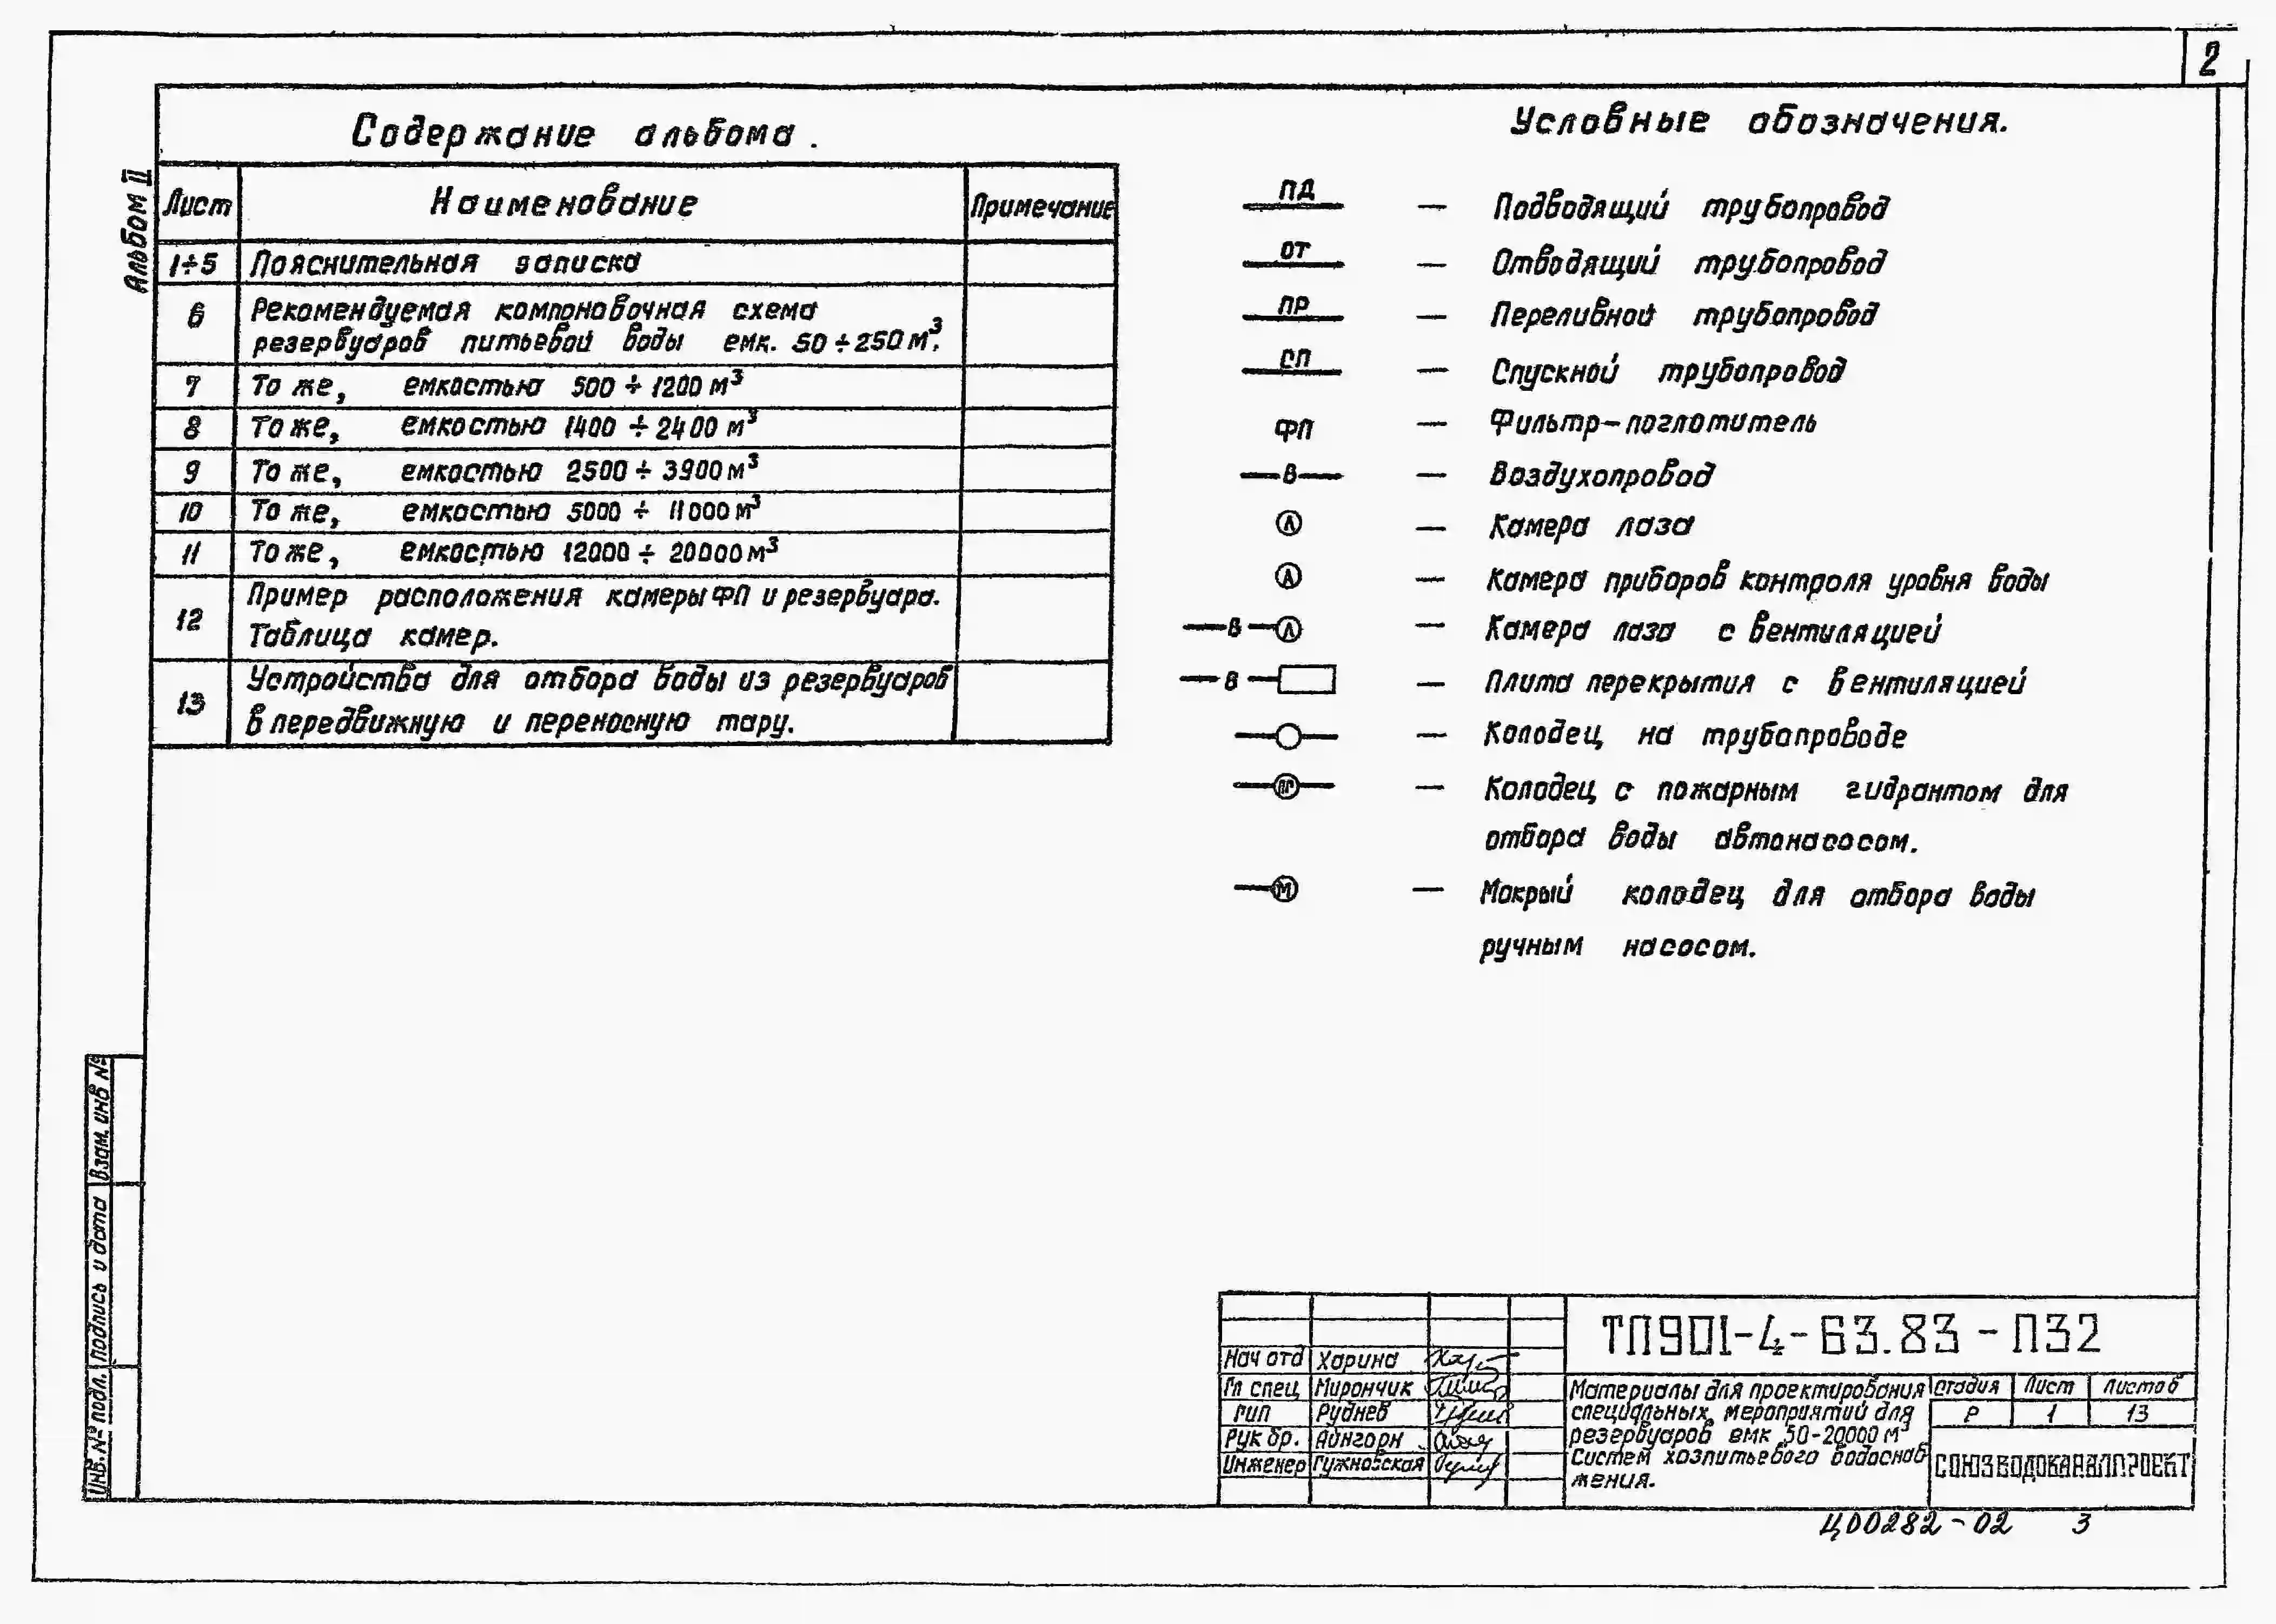 2
Альбом II
Содержание альбома.
Лист Наименование Примечание
1÷5 Пояснительная записка
6 Рекомендуемая компоновочная схема
резервуаров питьевой воды емк. 50÷250 м³.
7 То же, емкостью 500÷1200 м³
8 То же, емкостью 1400÷2400 м³
9 То же, емкостью 2500÷3900 м³
10 То же, емкостью 5000÷11000 м³
11 То же, емкостью 12000÷20000 м³
12 Пример расположения камеры ФП и резервуара.
Таблица камер.
13 Устройства для отбора воды из резервуаров
в передвижную и переносную тару.
Условные обозначения.
ПД — Подводящий трубопровод
ОТ — Отводящий трубопровод
ПР — Переливной трубопровод
СП — Спускной трубопровод
ФП — Фильтр-поглотитель
В — Воздухопровод
Л — Камера лаза
— Камера приборов контроля уровня воды
В Л — Камера лаза с вентиляцией
В — Плита перекрытия с вентиляцией
— Колодец на трубопроводе
ПГ — Колодец с пожарным гидрантом для
отбора воды автонасосом.
М — Мокрый колодец для отбора воды
ручным насосом.
Взам. инв №
Подпись и дата
Инв. № подл.
Нач отд Харина
Гл спец Мирончик
ГИП Руднев
Рук бр. Айнгорн
Инженер Гужновская
ТП901-4-63.83-ПЗ2
Материалы для проектирования
специальных мероприятий для
резервуаров емк 50-20000 м³
Систем хозпитьевого водоснаб
жения.
Стадия Лист Листов
Р 1 13
СОЮЗВОДОКАНАЛПРОЕКТ
Ц00282-02 3